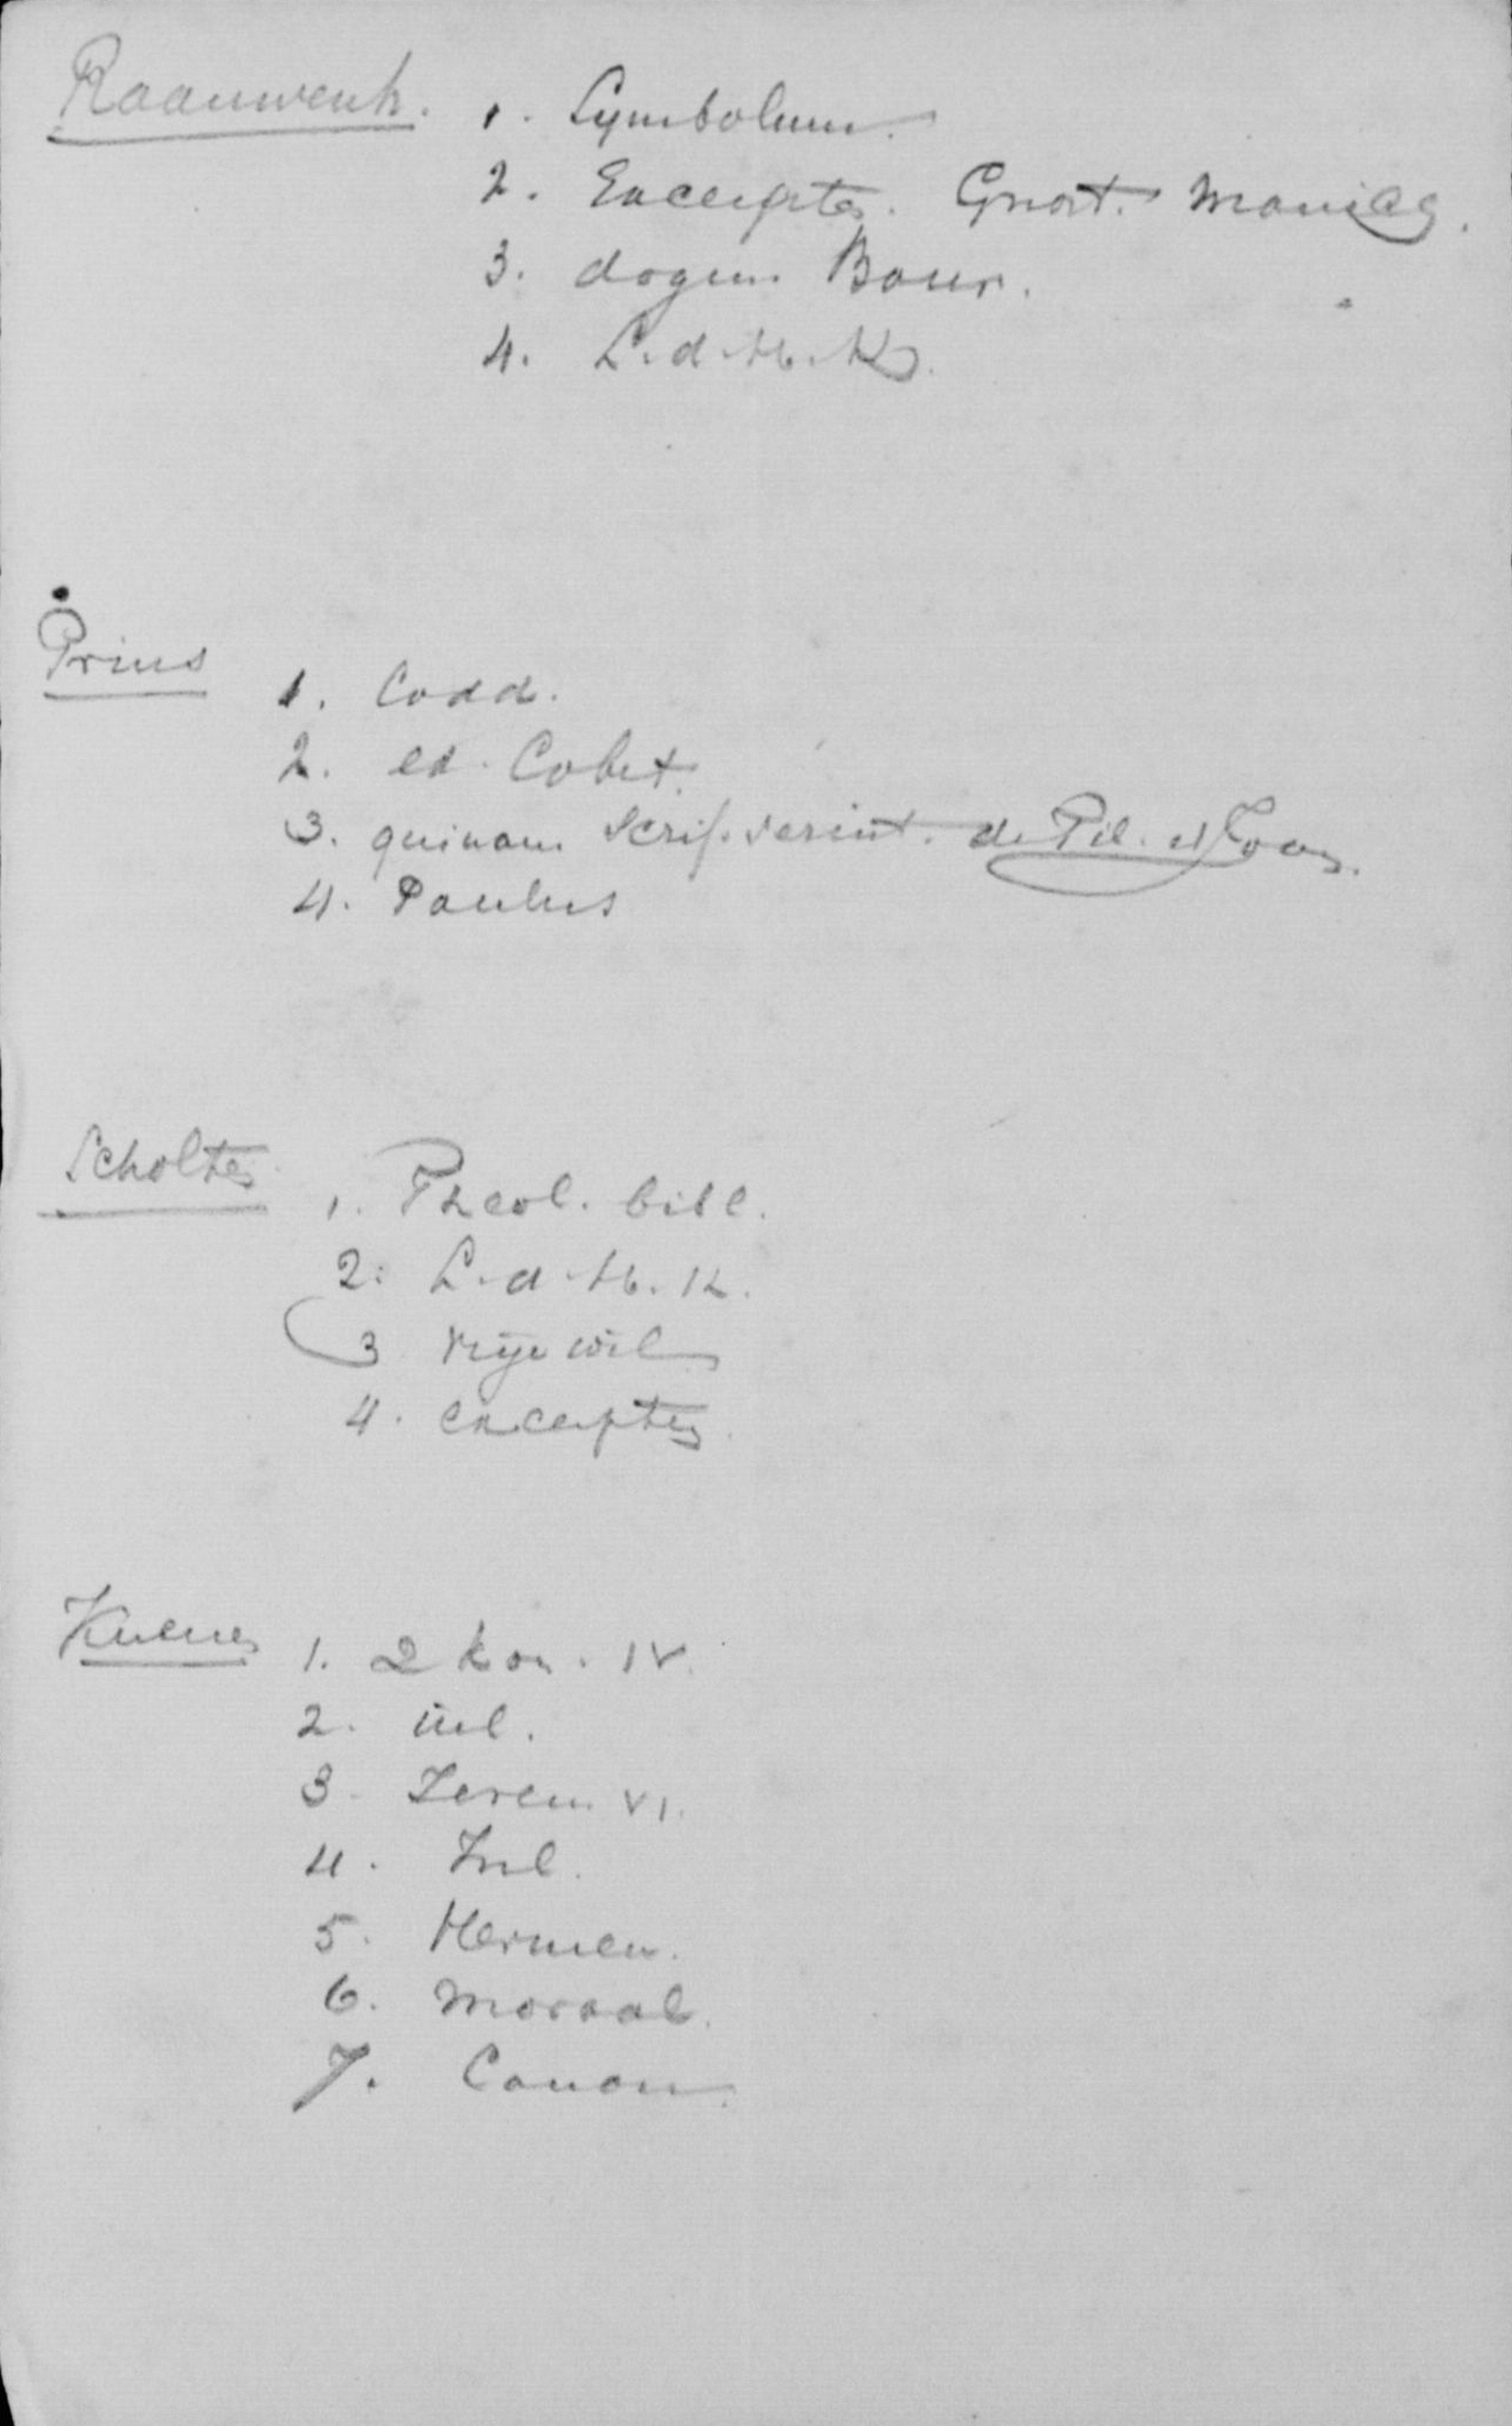 Raauwenh. 1. Symbolum.
2. Excerpten. Gnost. Manich.
3. dogm. Baur.
4. L. d. H. K.
Prins
1. Codd.
2. ed. Cobet.
3. quinam scripserint. de Pil. et Joan.
4. Paulus
Scholten
1. Theol. bibl.
2. L. d. H. K.
3 vrije wil
4. excerpten
Kuenen 1. 2 Kon. IV.
2. inl.
3. Jerem. VI.
4. Inl.
5. Hermen.
6. Moraal.
7. Canon.